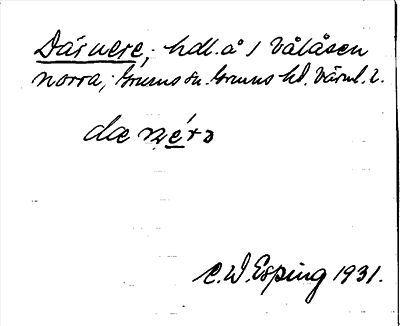 Där nere, hdl. å 1 Vålåsen
norra, Grums sn. Grums hd. Värml. l.
dæ nér
C. W. Esping 1931.